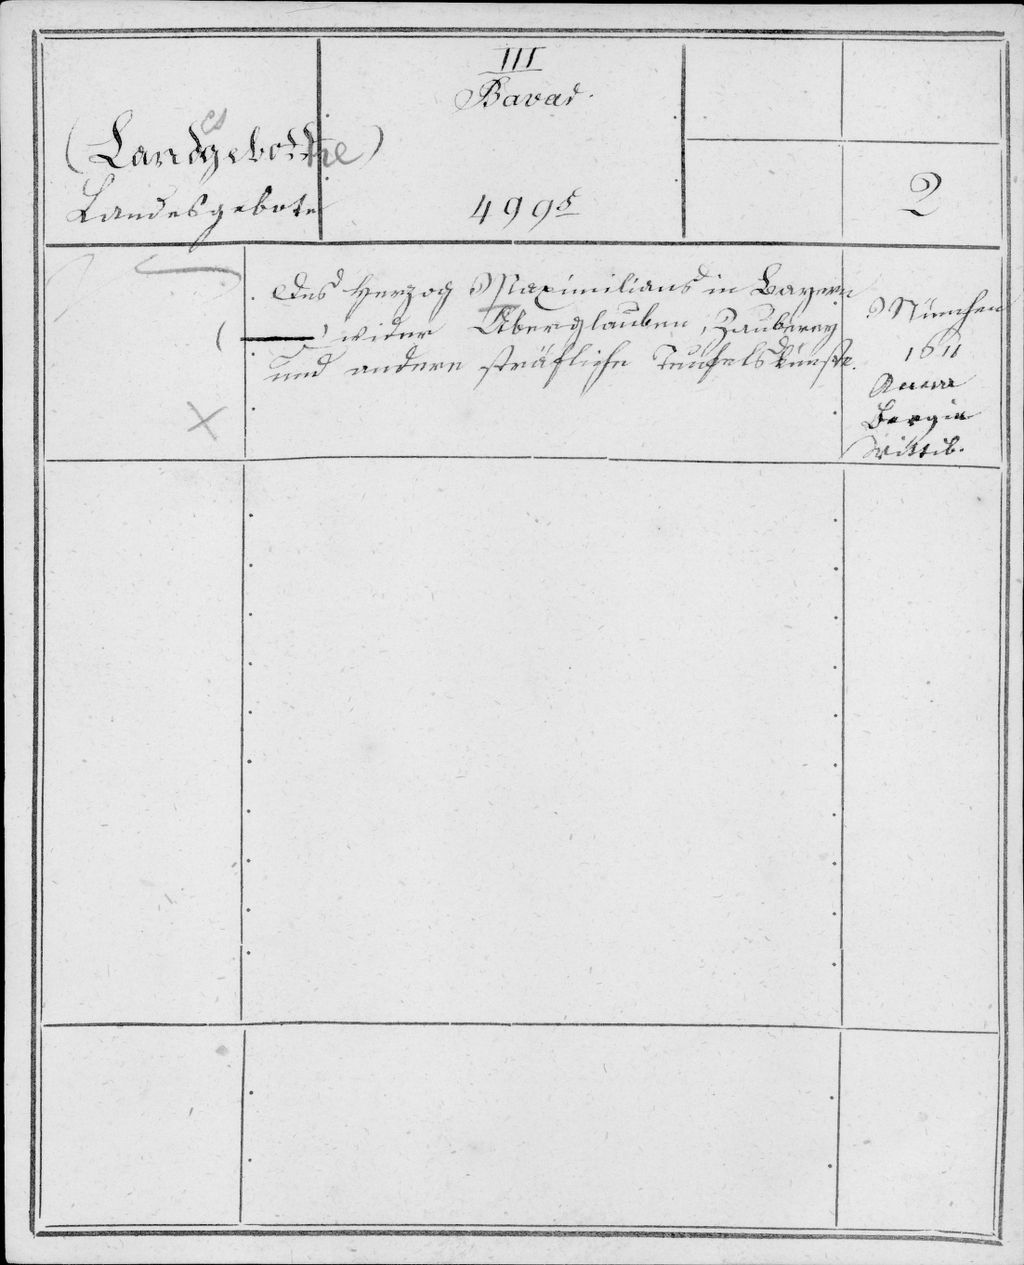 III
Bavar.
(Landesgebotte)
Landesgebote
499 5
2
des Herzog Maximilians in Bayern
(——) wider Aberglauben, Zauberey
und andere sträfliche Teufelskünste.
München
1611
Anna
Bergin
Wittib.